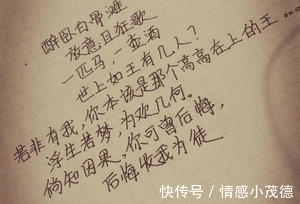 醉卧白骨滩
放意且狂歌
一匹马，一壶酒
世上如王有几人？
若非有我，你本该是那个高高在上的王…
浮生若梦，为欢几何。
倘知因果，你可曾后悔，
后悔收我为徒
快传号 / 情感小茂德